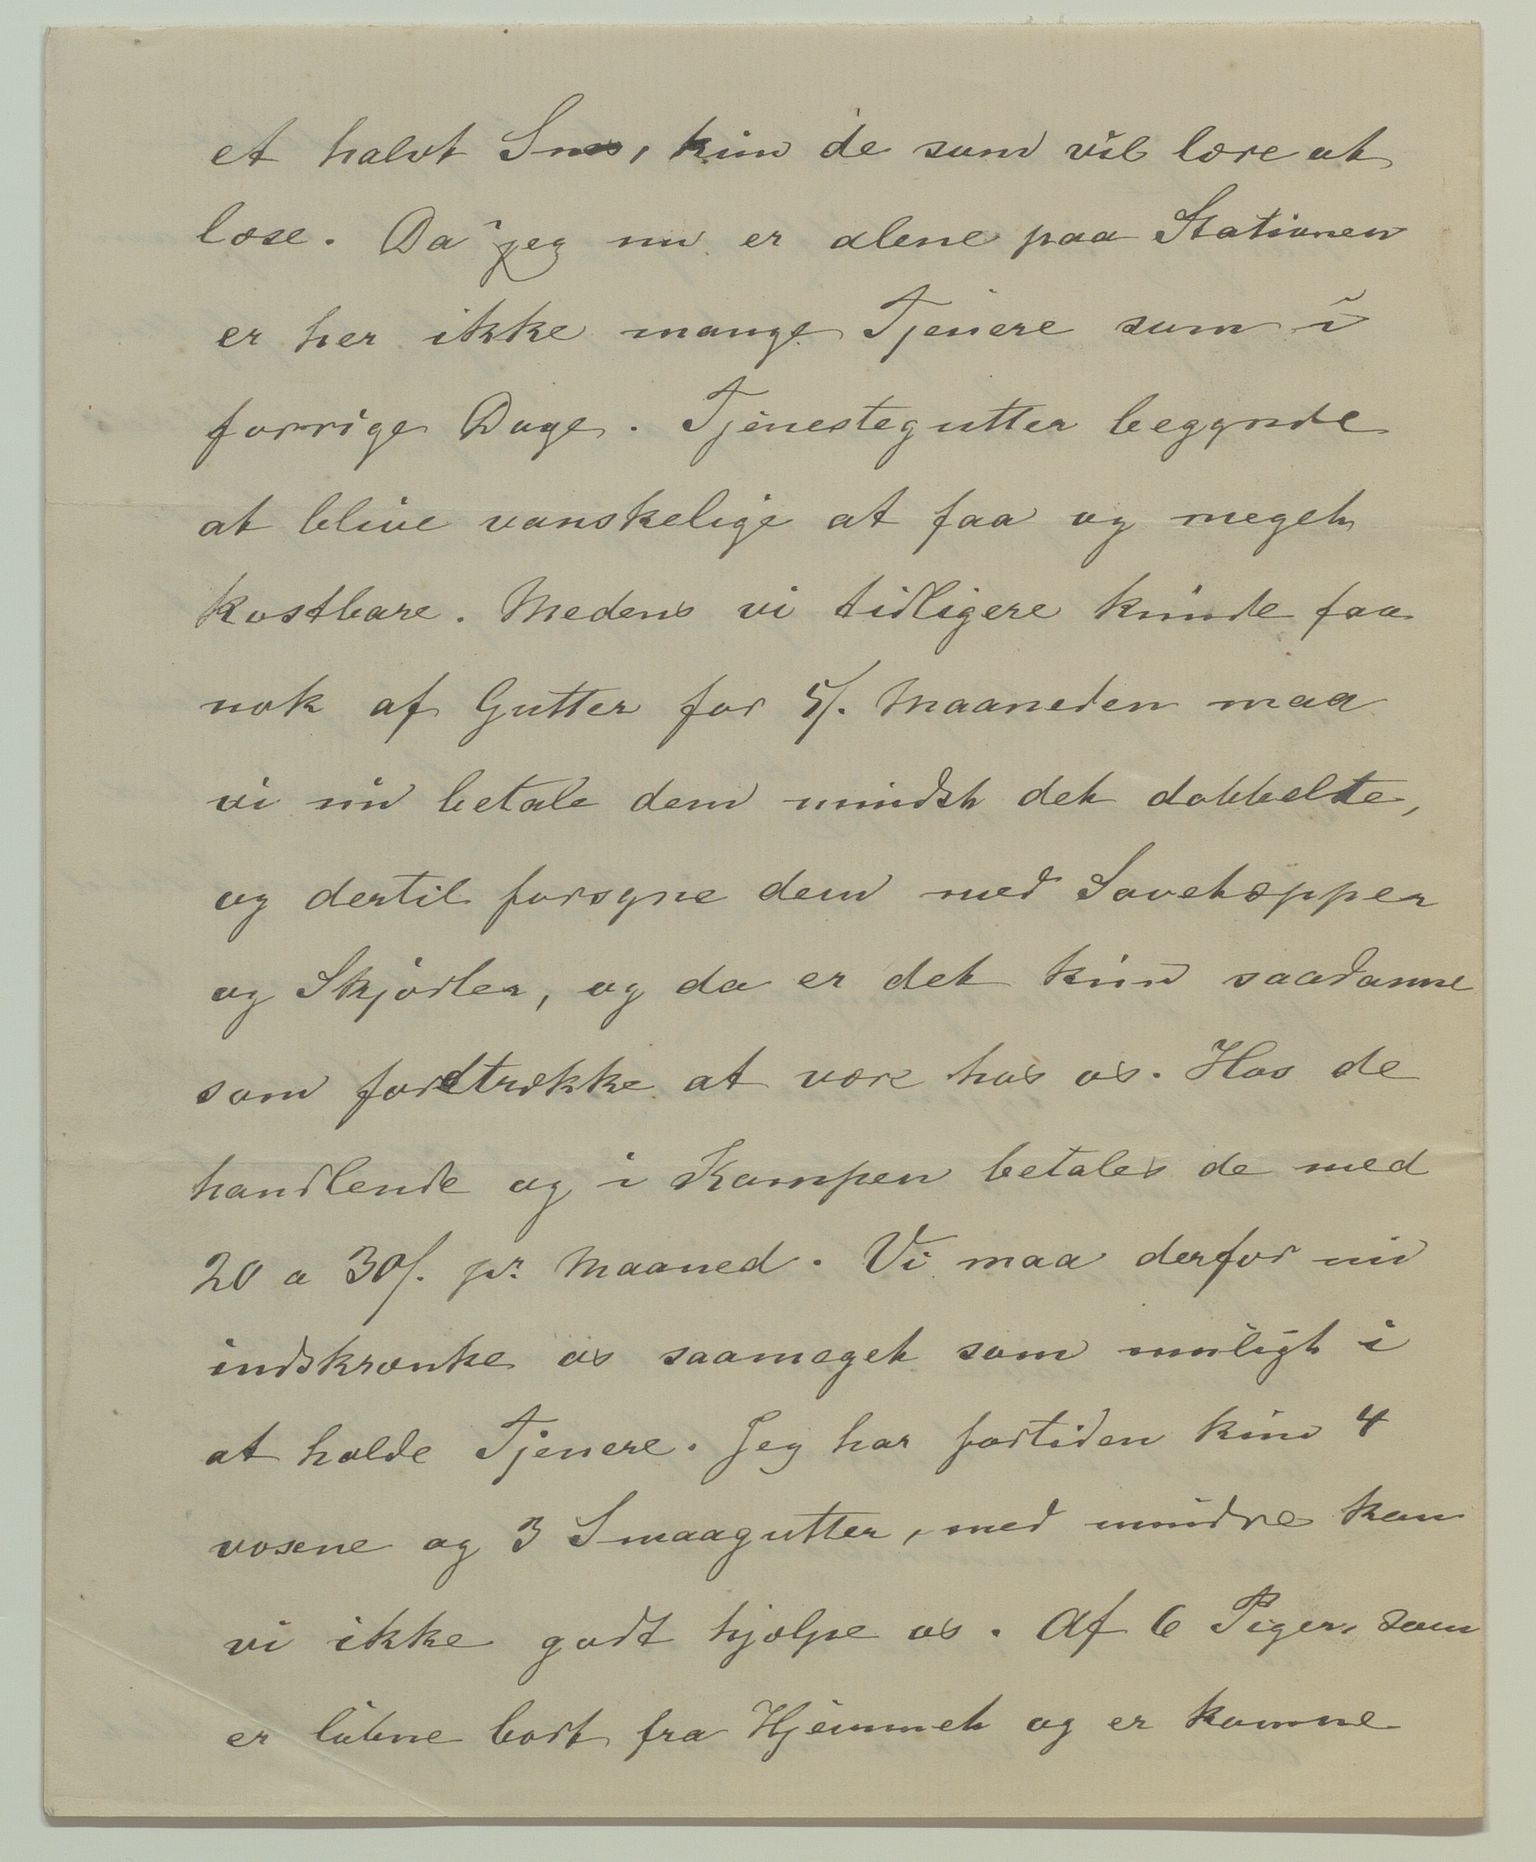 et halvt Snes, kun de som vil lære at
læse. Da jeg nu er alene paa Stationen
er her ikke mange Tjenere som i
forrige Dage. Tjenestegutter begynde
at blive vanskelige at faa og meget
kostbare. Medens vi tidligere kunde faa
nok af Gutter for 5/. Maaneden maa
vi nu betale dem mindst det dobbelte,
og dertil forsyne dem med Sovetæpper
og Skjorter, og da er det kun saadanne
som foretrække at være hos os. Hos de
handlende og i Kampen betales de med
20 a 30/. pr Maaned. Vi maa derfor nu
indskrænke os saameget som muligt i
at holde Tjenere. Jeg har fortiden kun 4
voxne og 3 Smaagutter, med mindre kan
vi ikke godt hjælpe os. Af 6 Piger, som
er løbne bort fra Hjemmet og er komne